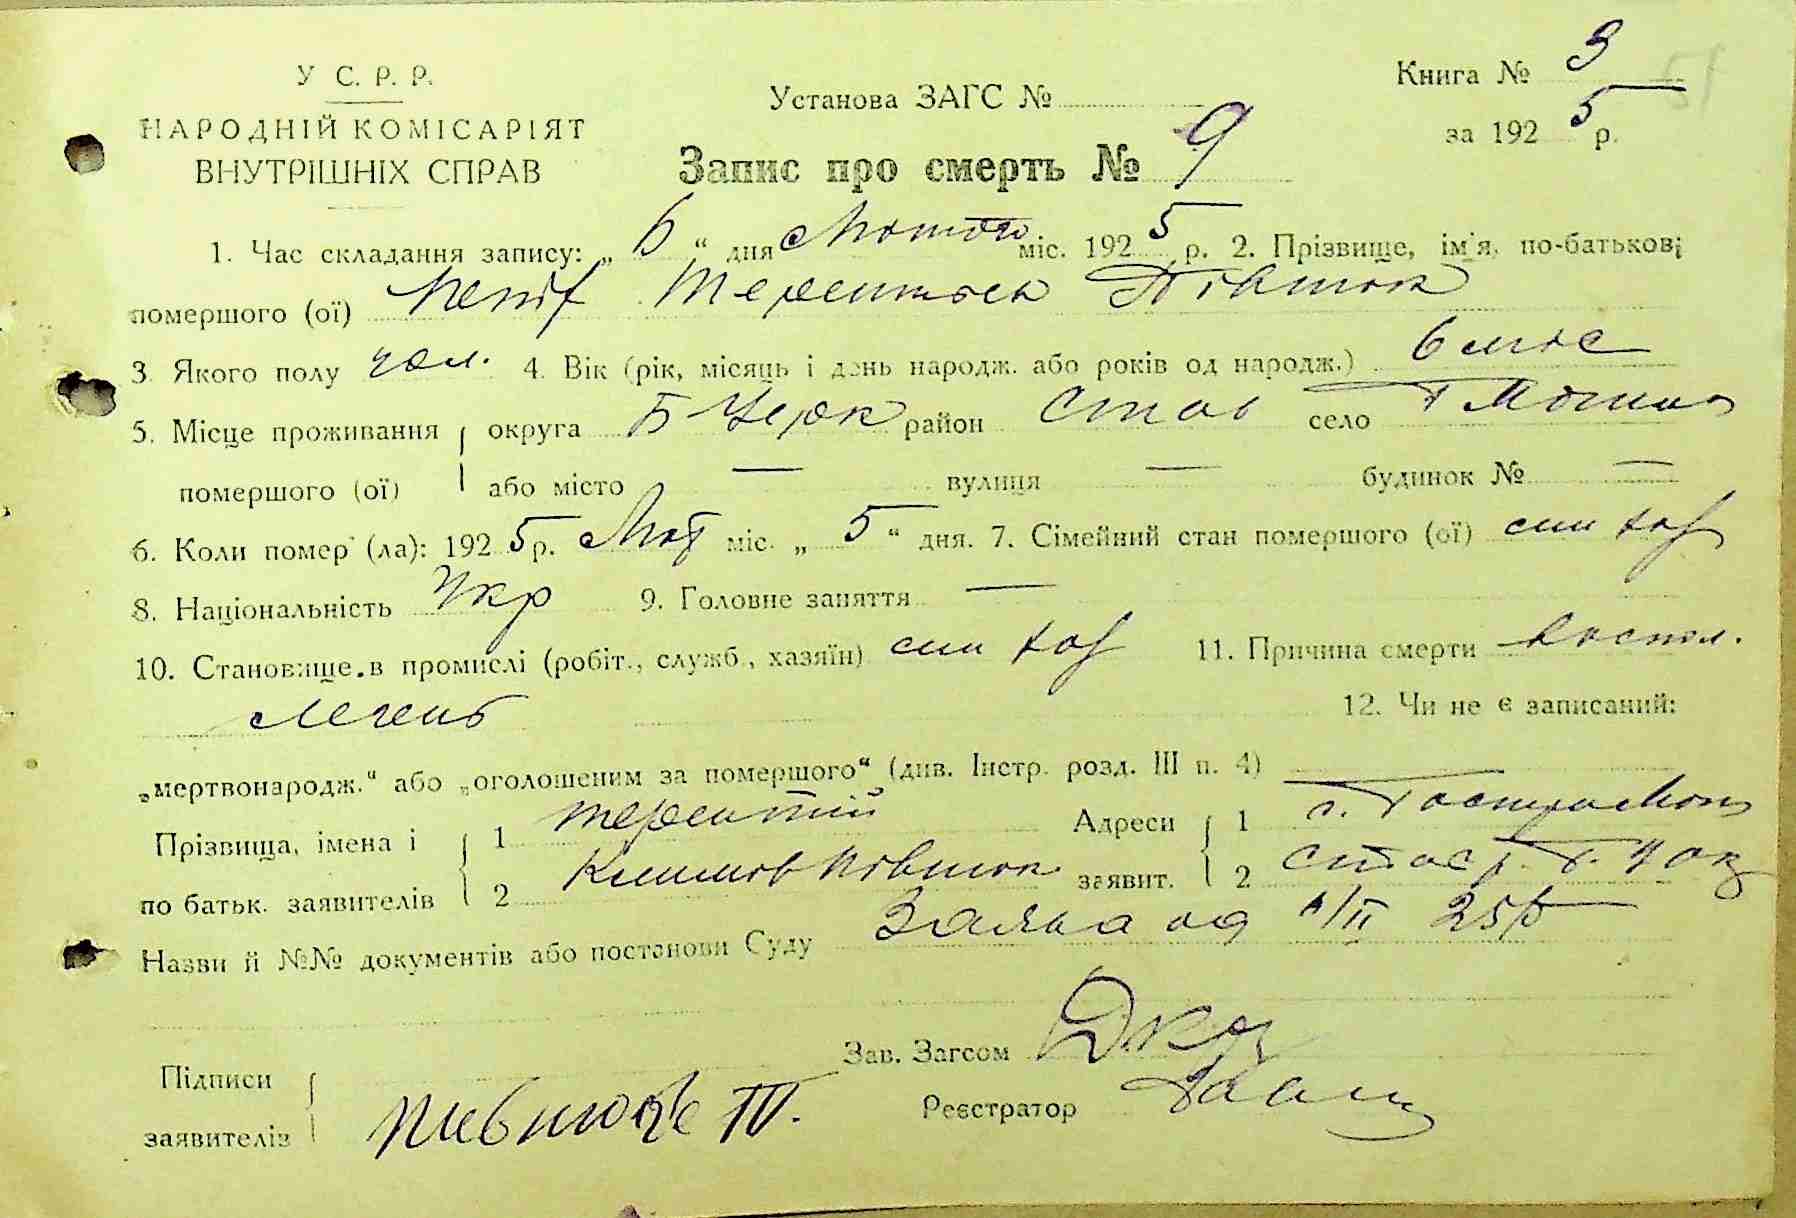 У С. Р. Р.
НАРОДНІЙ КОМІСАРІЯТ
ВНУТРІШНІХ СПРАВ
Установа ЗАГС №
Запис про смерть № 9
Книга № 3
за 192 5 р.
1. Час складання запису: „ 6 “ дня Лютого міс. 192 5 р. 2. Прізвище, ім'я, по-батькові
помершого (ої) Терентьев Півтюк
3. Якого полу чол. 4. Вік (рік, місяць і день народж. або років од народж.) 6 міс
5. Місце проживання помершого (ої) округа Б Церк район Став село Т Могила
або місто — вулиця — будинок № —
6. Коли помер (ла): 192 5 р. Лют міс. „ 5 “ дня. 7. Сімейний стан помершого (ої) син хаз
8. Національність Укр 9. Головне заняття —
10. Становище в промислі (робіт., служб., хазяїн) син хаз 11. Причина смерти воспал.
легень 12. Чи не є записаний:
„мертвонародж.“ або „оголошеним за помершого“ (див. Інстр. розд. III п. 4)
Прізвища, імена і по батьк. заявителів 1 Терентій Адреси заявит. 1 с.
2 Климов Півтюк 2
Назви й №№ документів або постанови Суду Заява од /II 25р
Зав. Загсом
Підписи заявителів Реєстратор